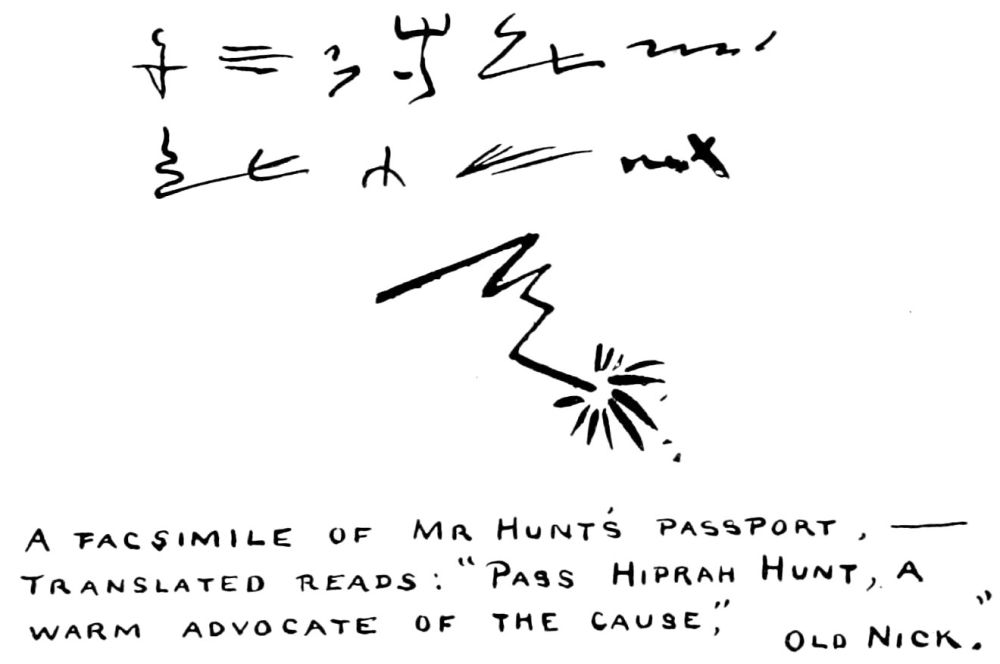 A FACSIMILE OF MR HUNT'S PASSPORT, —
TRANSLATED READS: "PASS HIPRAH HUNT, A
WARM ADVOCATE OF THE CAUSE," OLD NICK."